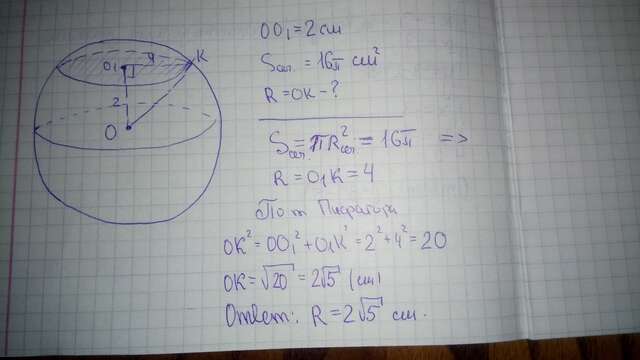 O₁ 4 K
2
O
OO₁ = 2 см
Sсеч. = 16π см²
R = OK - ?
Sсеч. = πR²сеч. = 16π =>
R = O₁K = 4
По т Пифагора
OK² = OO₁² + O₁K² = 2² + 4² = 20
OK = √20 = 2√5 (см)
Ответ: R = 2√5 см.